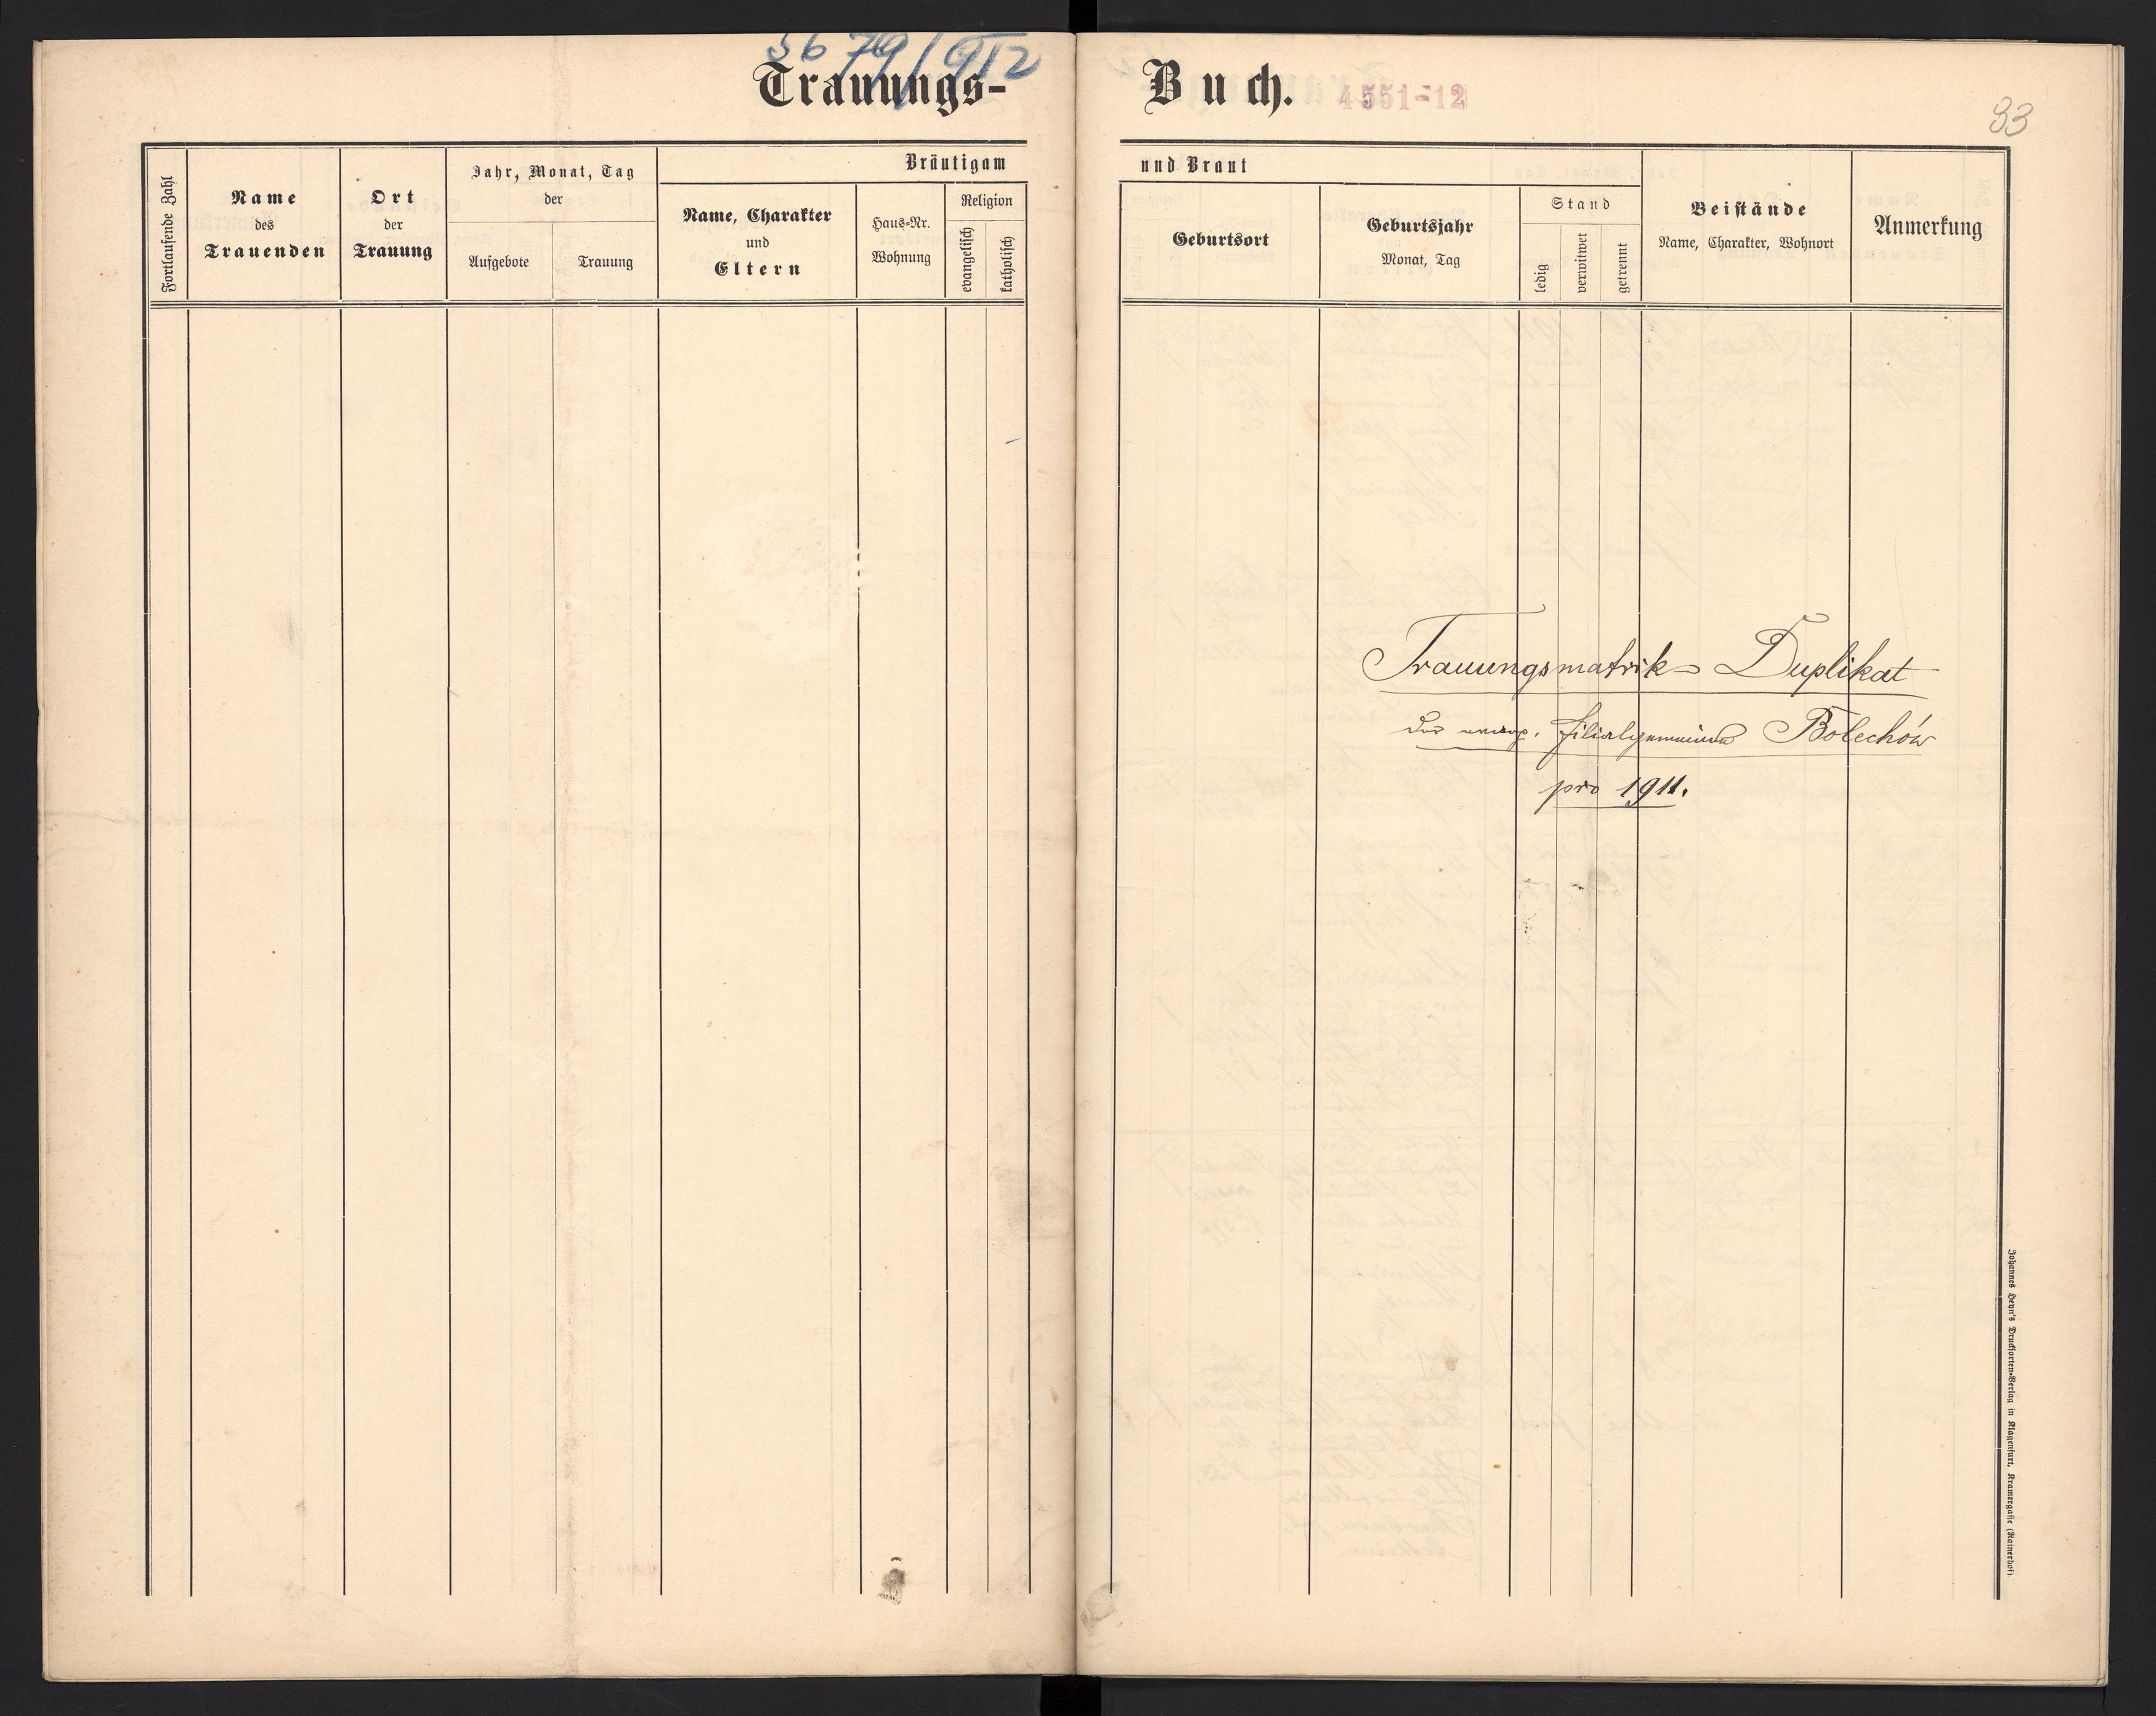 3679/912
Trauungs-
Buch.
4551-12
33
Fortlaufende Zahl
Name
des
Trauenden
Ort
der
Trauung
Jahr, Monat, Tag
der
Aufgebote
Trauung
Bräutigam
Name, Charakter
und
Eltern
Haus-Nr.
Wohnung
Religion
evangelisch
katholisch
und Braut
Geburtsort
Geburtsjahr
Monat, Tag
Stand
ledig
verwitwet
getrennt
Beistände
Name, Charakter, Wohnort
Anmerkung
Trauungsmatrik-Duplikat
der evang. Filialgemeinde Bolechów
pro 1911.
Johannes Heyn's Drucksorten-Verlag in Klagenfurt, Kramergasse (Rainerhof)